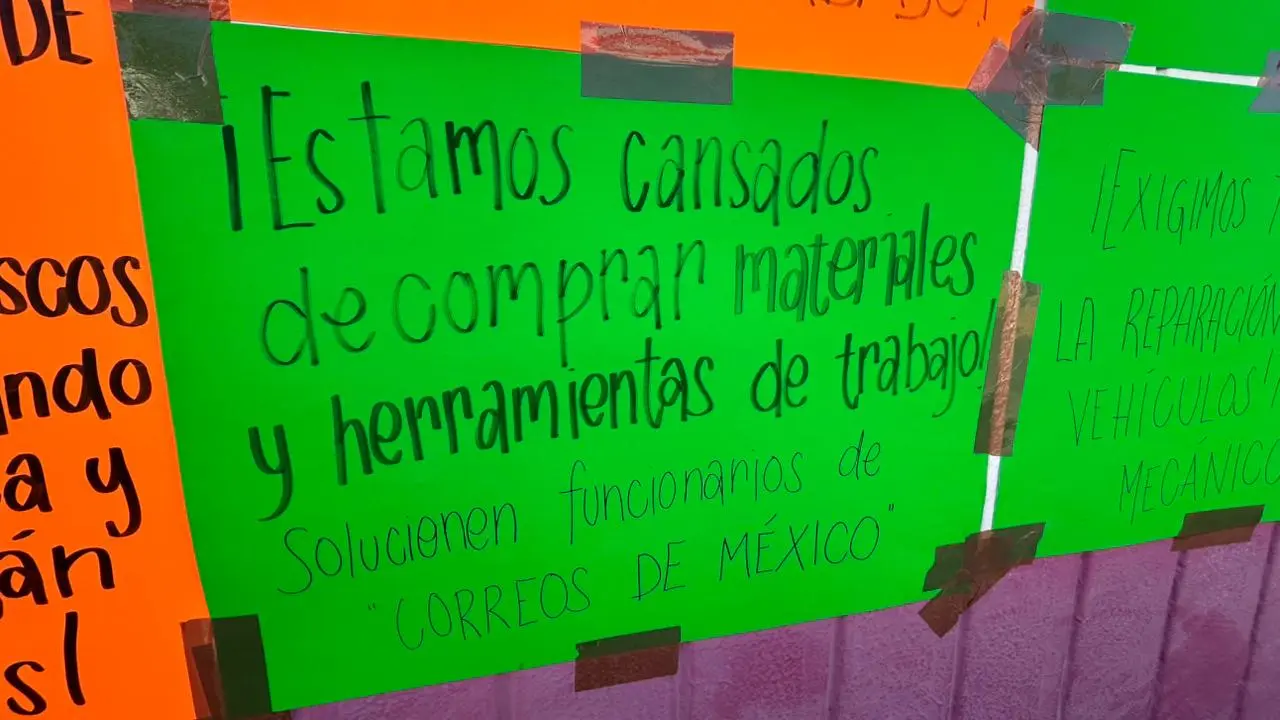 DE
scos
ndo
a y
án
s!
¡Estamos cansados
de comprar materiales
y herramientas de trabajo!
Solucionen funcionarios de
"CORREOS DE MÉXICO"
¡EXIGIMOS
LA REPARACIÓN
VEHÍCULOS
MECÁNICO